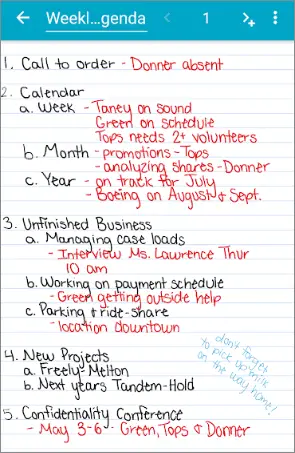 Weekl...genda
1
1. Call to order - Donner absent
2. Calendar
a. Week - Taney on sound
Green on schedule
Tops needs 2+ volunteers
b. Month - promotions - Tops
- analyzing shares - Donner
c. Year - on track for July
- Boeing on August & Sept.
3. Unfinished Business
a. Managing case loads
- Interview Ms. Lawrence Thur
10 am
b. Working on payment schedule
- Green getting outside help
c. Parking & ride-share
- location downtown
4. New Projects
a. Freely Melton
b. Next years Tandem-Hold
don't forget
to pick up milk
on the way home!
5. Confidentiality Conference
- May 3-6 - Green, Tops & Donner